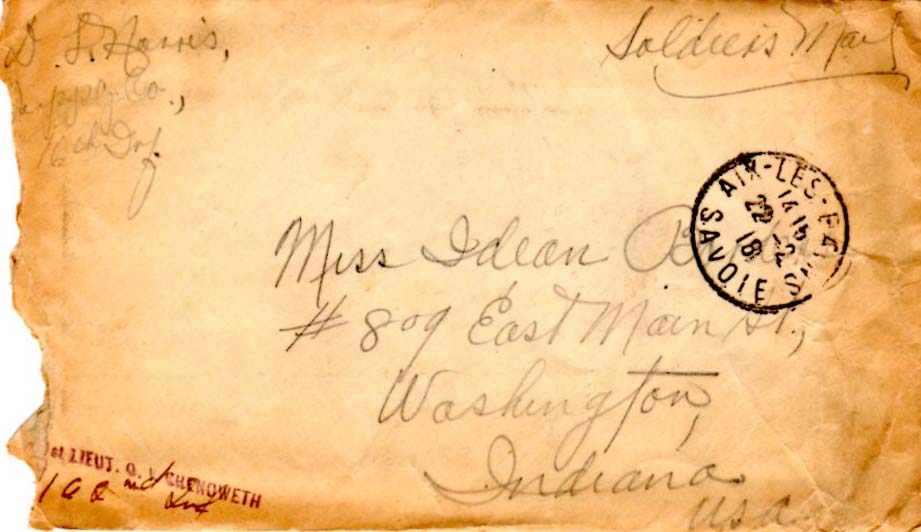 D. S. Harris,
Supply Co.,
16th Inf.
Soldier's Mail
AIX-LES-BAINS
14 15
22 -2
18
SAVOIE
Miss Idean
# 809 East Main St.,
Washington,
Indiana
USA
1st LIEUT. O. CHENOWETH
Inf